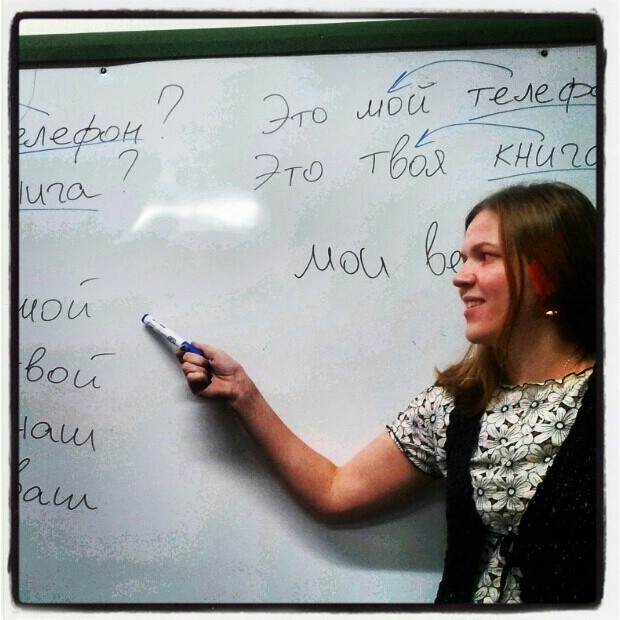 телефон?
Это мой телефо
книга?
Это твоя книга
мои ве
мой
твой
наш
ваш